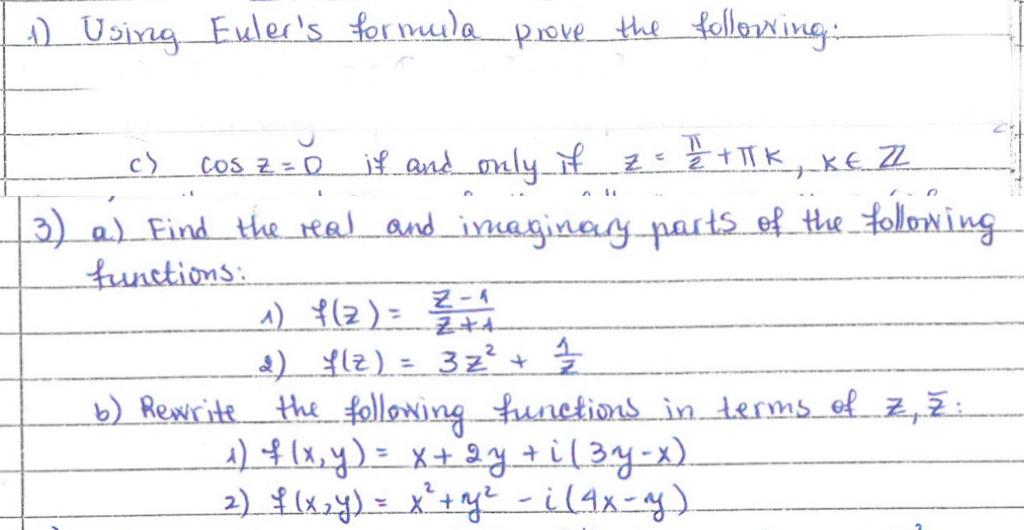 1) Using Euler's formula prove the following:
c) cos z = 0 if and only if z = π/2 + πk, k ∈ ℤ
3) a) Find the real and imaginary parts of the following
functions:
1) f(z) = (z-1)/(z+1)
2) f(z) = 3z² + 1/z
b) Rewrite the following functions in terms of z, z̄:
1) f(x,y) = x + 2y + i(3y-x)
2) f(x,y) = x² + y² - i(4x-y)